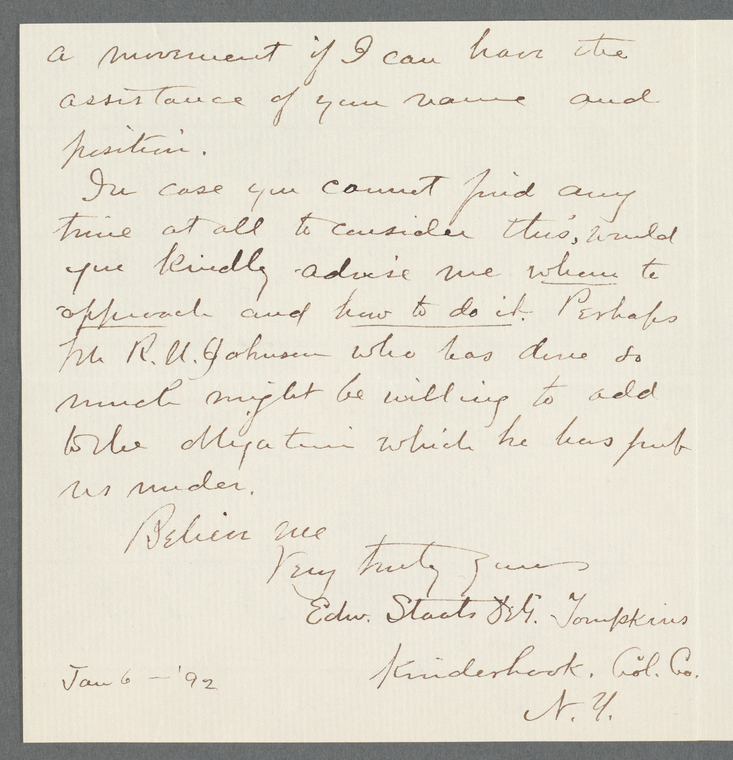 a movement if I can have the
assistance of your name and
position.
In case you cannot find any
time at all to consider this, would
you kindly advise me whom to
approach and how to do it. Perhaps
Mr R. U. Johnson who has done so
much might be willing to add
to the obligation which he has put
us under.
Believe me
Very truly yours
Edw. Staats DeG. Tompkins
Kinderhook. Col. Co.
N. Y.
Jan 6 – '92